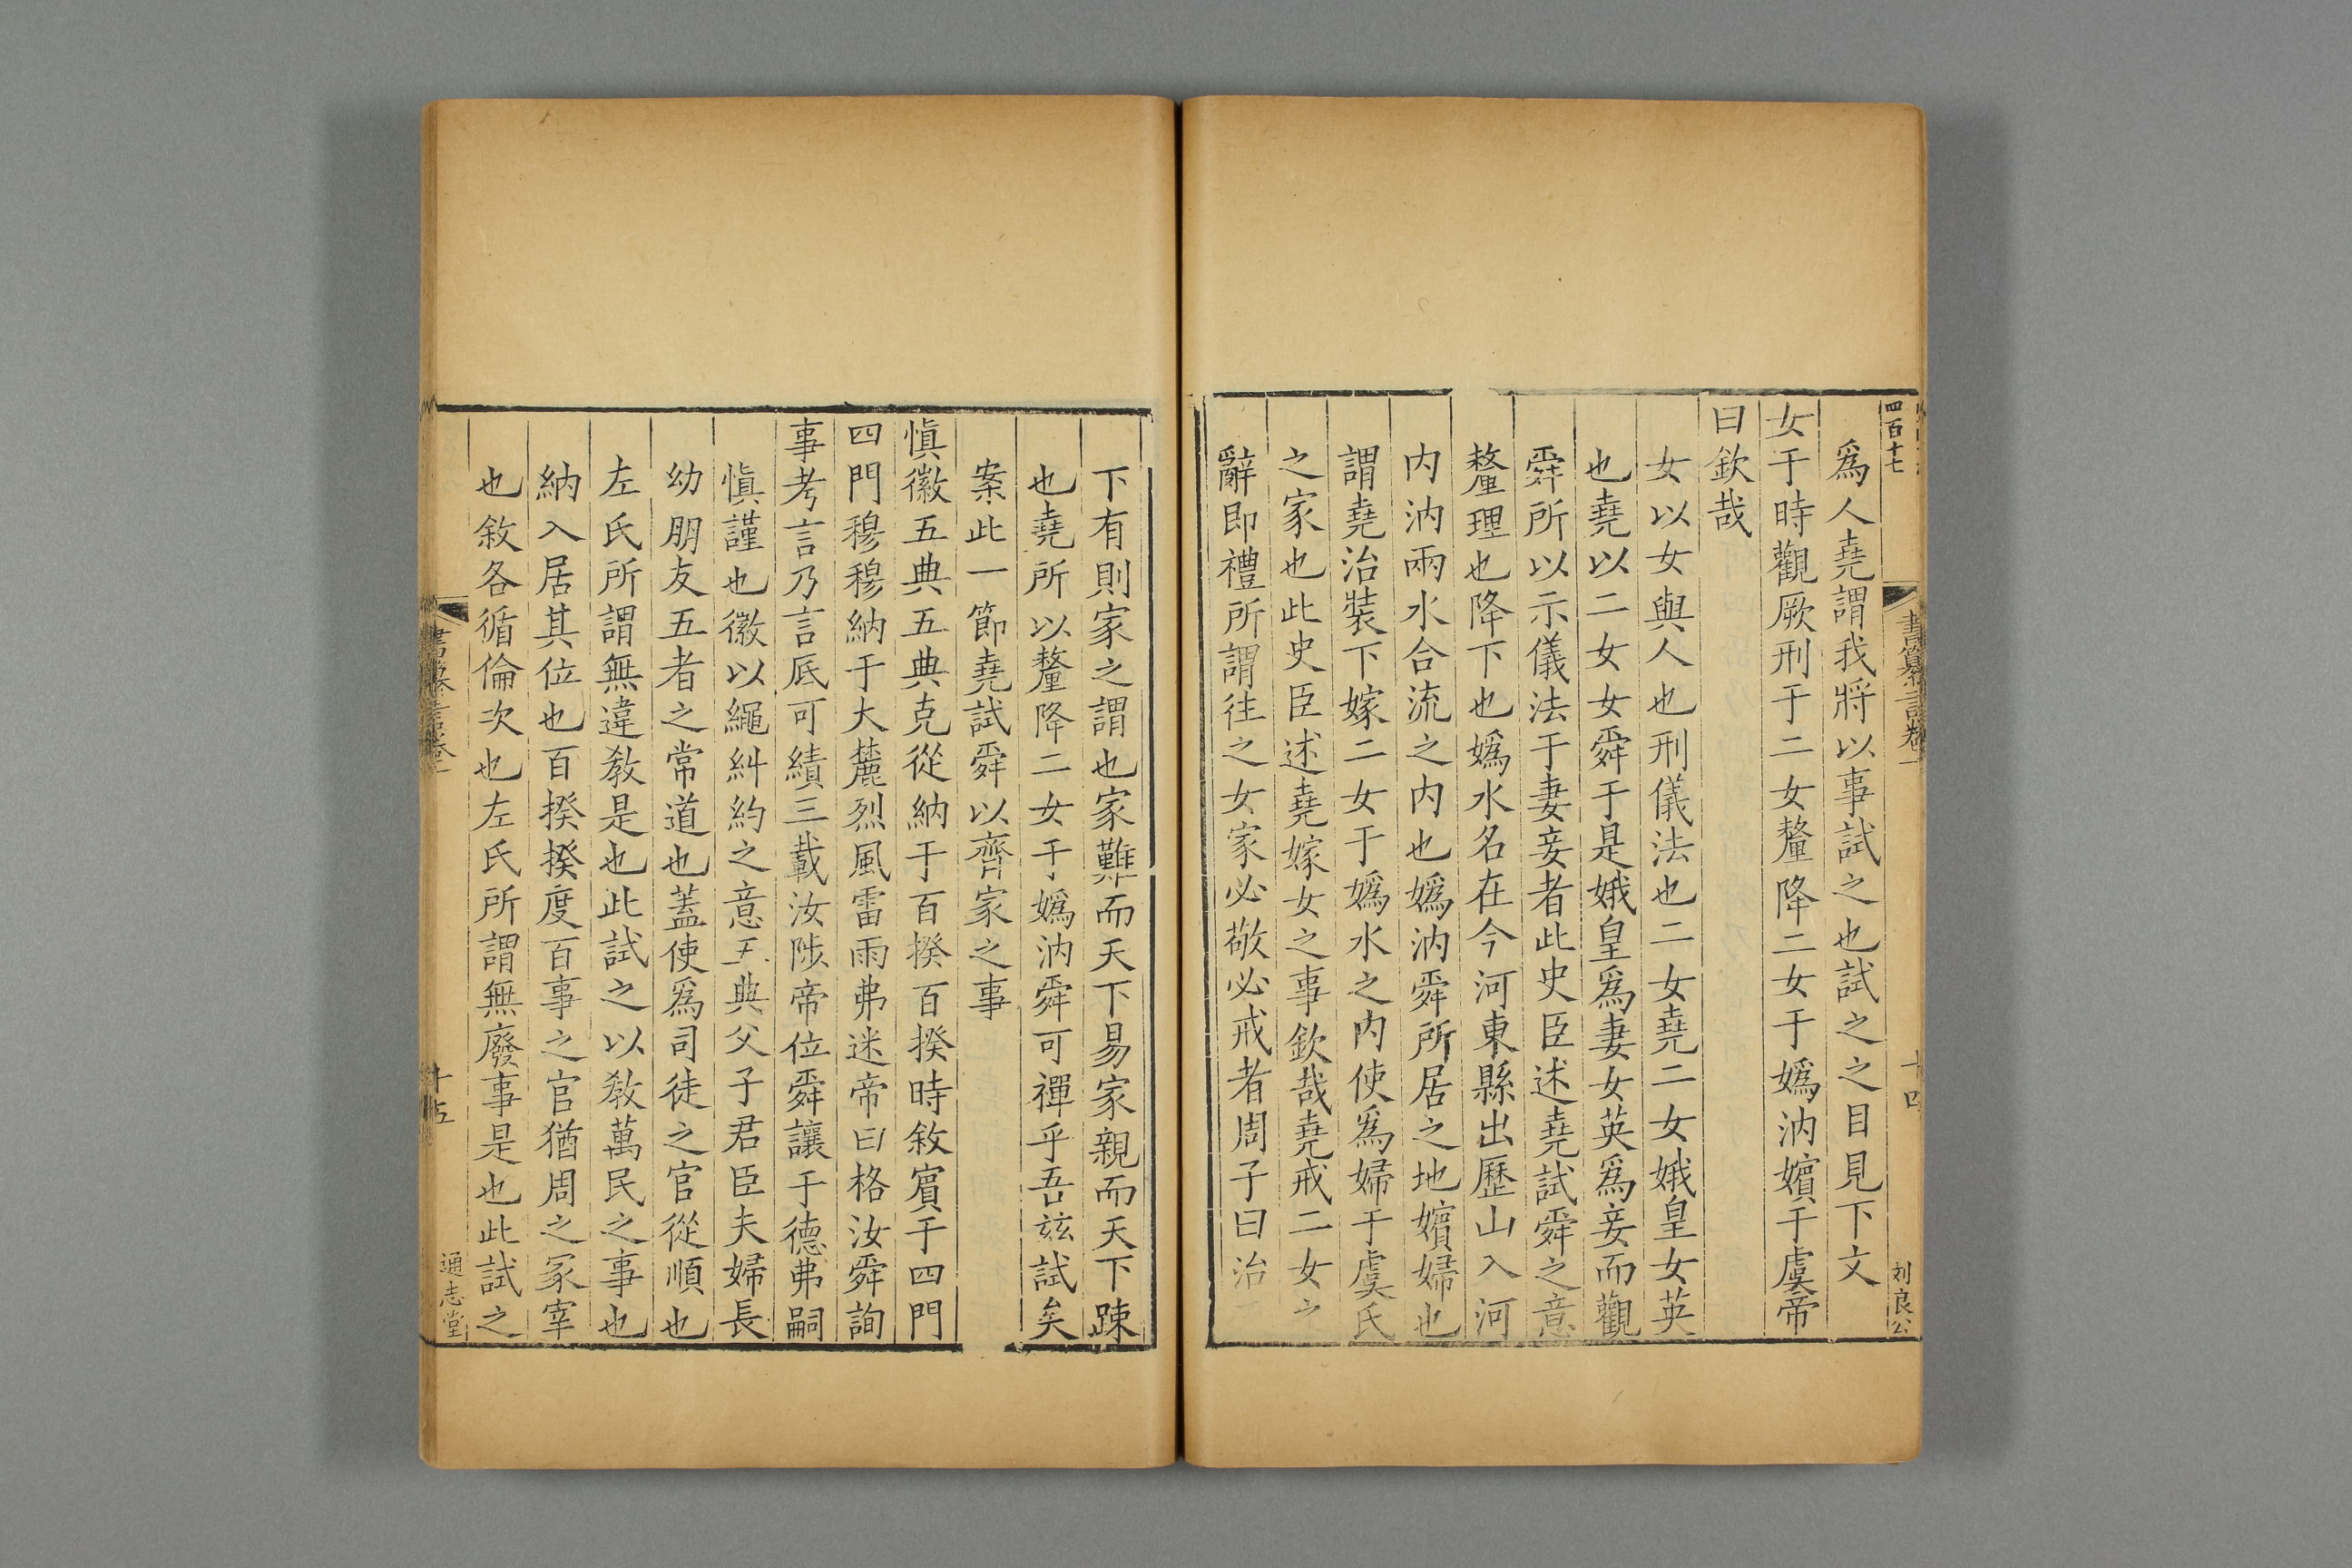 四百十七
十四
刘良公
爲人堯謂我將以事試之也試之之目見下文
女于時觀厥刑于二女釐降二女于嬀汭嬪于虞帝
曰欽哉
女以女與人也刑儀法也二女堯二女娥皇女英
也堯以二女女舜于是娥皇爲妻女英爲妾而觀
舜所以示儀法于妻妾者此史臣述堯試舜之意
釐理也降下也嬀水名在今河東縣出歷山入河
内汭兩水合流之内也嬀汭舜所居之地嬪婦也
謂堯治裝下嫁二女于嬀水之内使爲婦于虞氏
之家也此史臣述堯嫁女之事欽哉堯戒二女之
辭即禮所謂往之女家必敬必戒者周子曰治
下有則家之謂也家難而天下易家親而天下踈
也堯所以釐降二女于嬀汭舜可禪乎吾兹試矣
案此一節堯試舜以齊家之事
愼徽五典五典克從納于百揆百揆時敘賓于四門
四門穆穆納于大麓烈風雷雨弗迷帝曰格汝舜詢
事考言乃言厎可績三載汝陟帝位舜讓于德弗嗣
愼謹也徽以繩糾約之意五典父子君臣夫婦長
幼朋友五者之常道也蓋使爲司徒之官從順也
左氏所謂無違敎是也此試之以敎萬民之事也
納入居其位也百揆揆度百事之官猶周之冢宰
也敘各循倫次也左氏所謂無廢事是也此試之
十五
通志堂